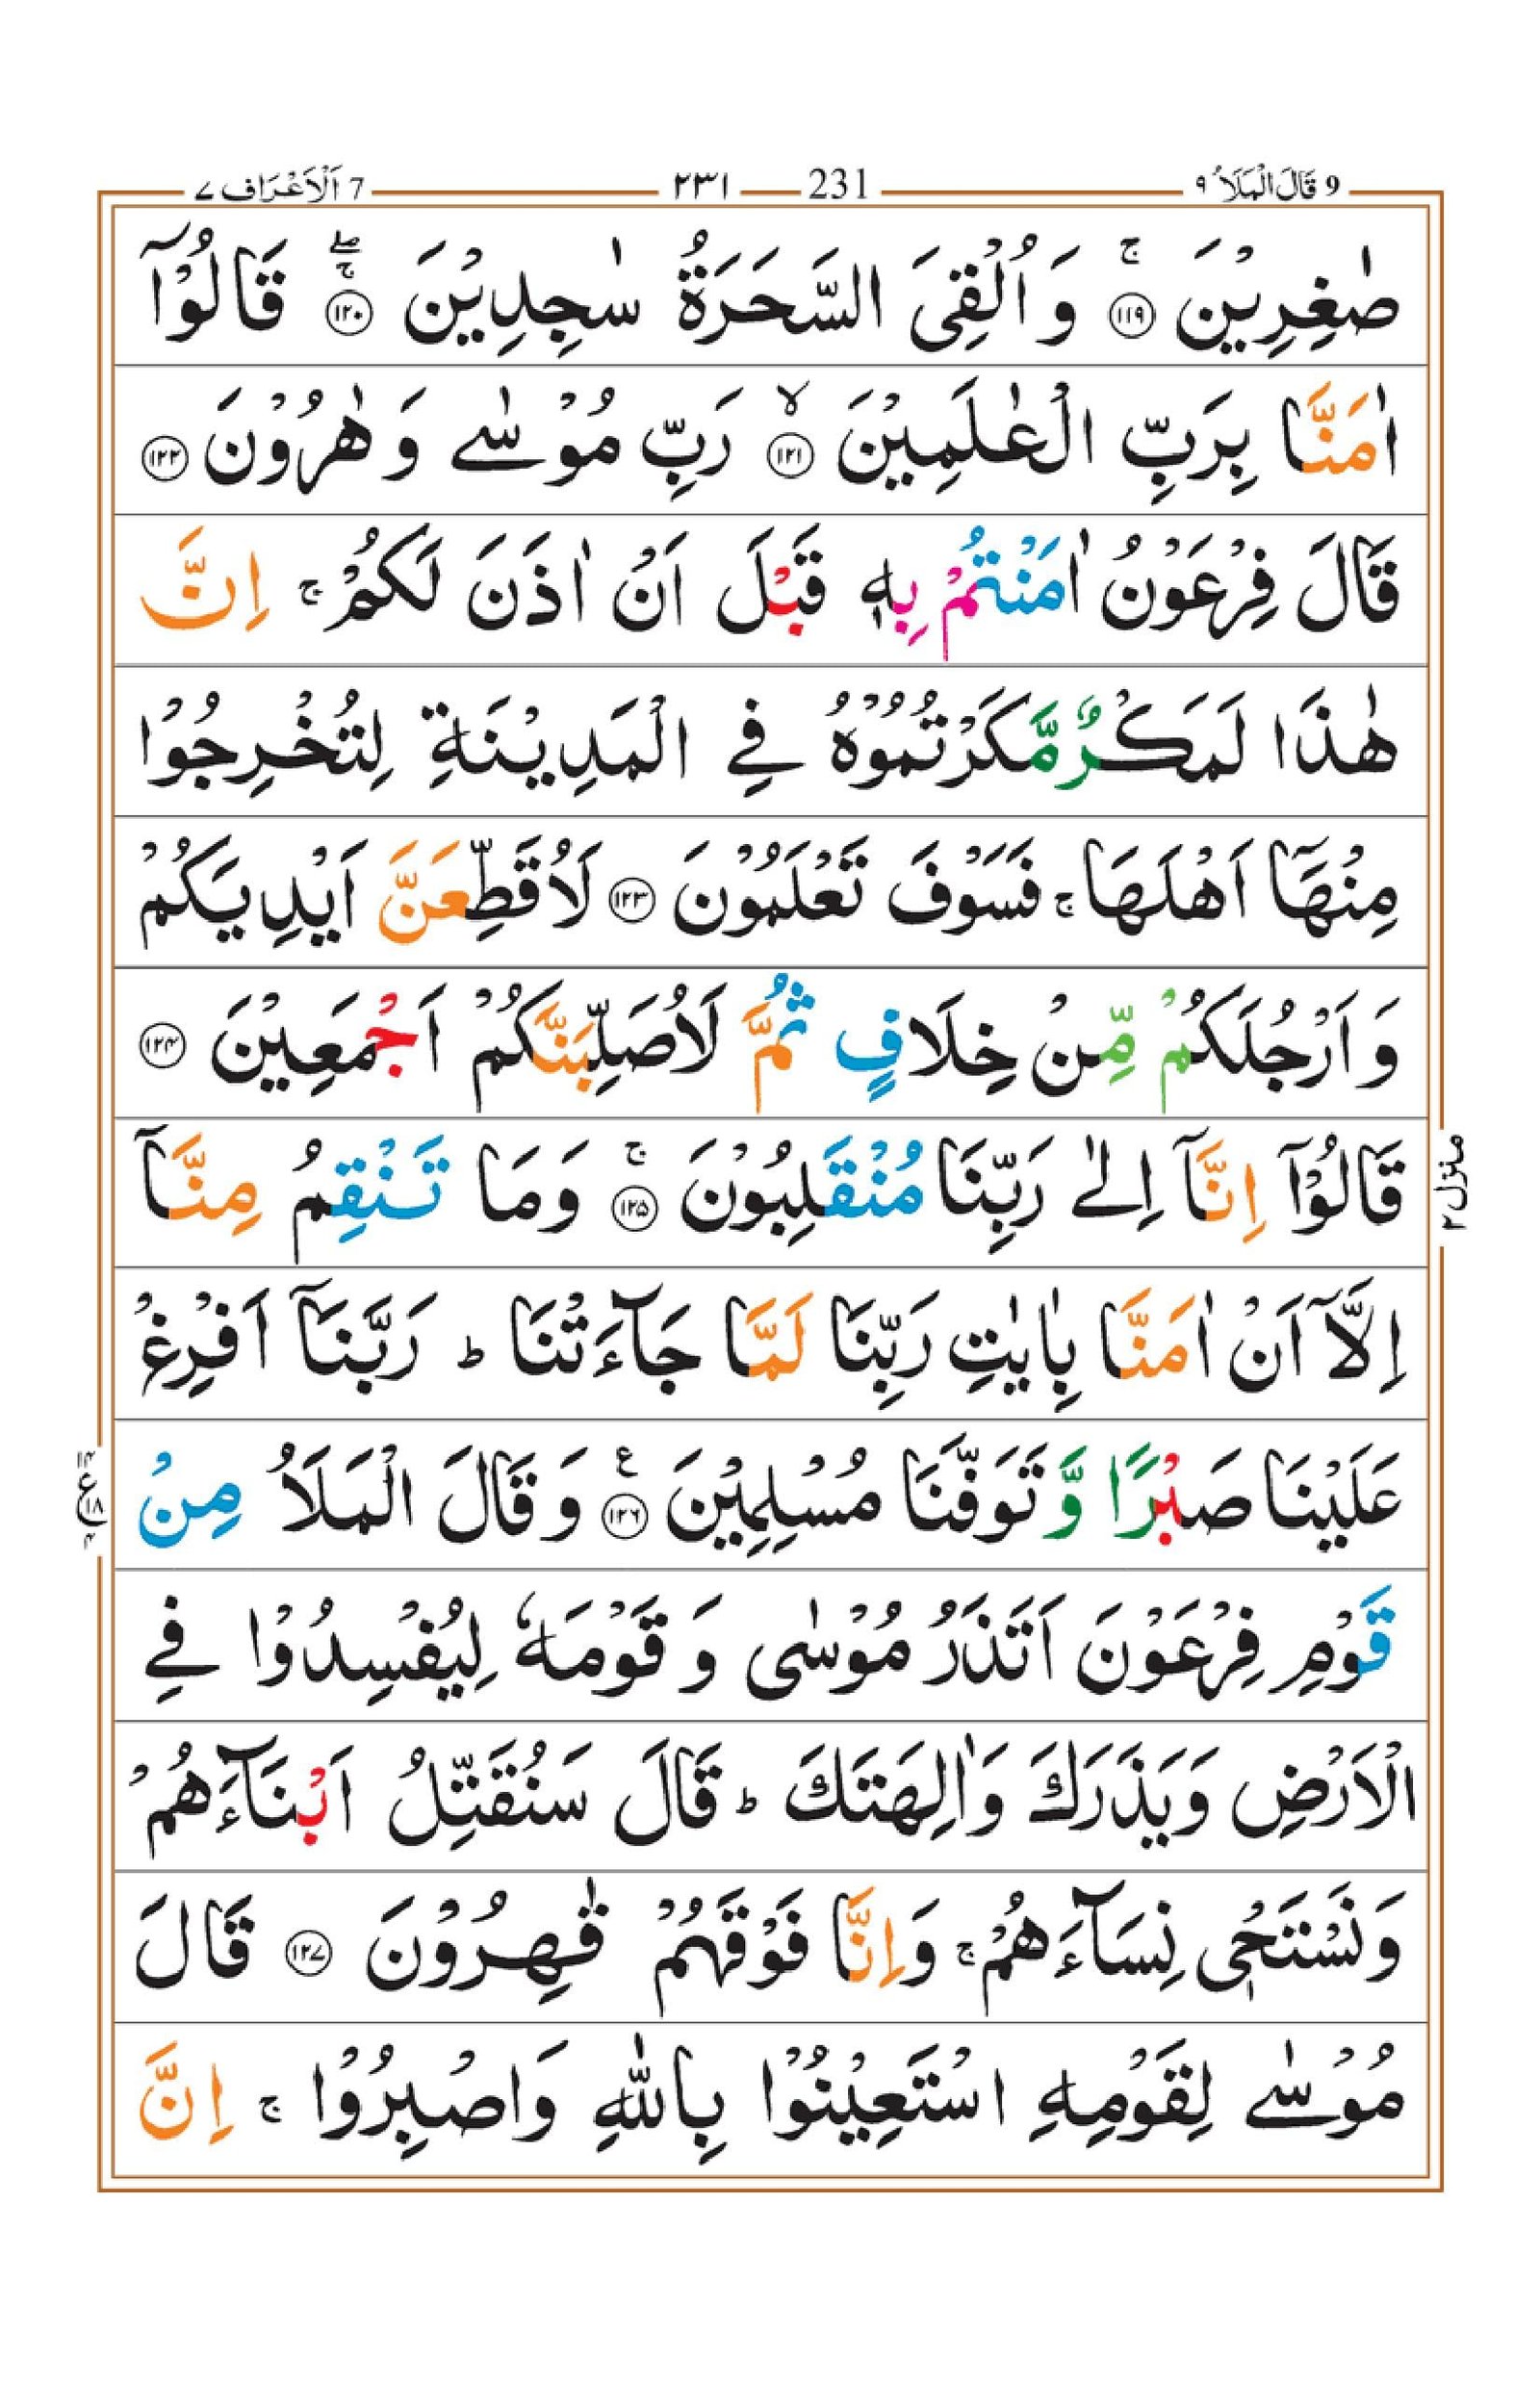 9 قَالَ الْمَلَاُ ٩ 231 ٢٣١ 7 اَلْاَعْرَاف ٧
صٰغِرِيْنَ ۚ ﴿١١٩﴾ وَ اُلْقِيَ السَّحَرَةُ سٰجِدِيْنَ ۚۖ ﴿١٢٠﴾ قَالُوْۤا
اٰمَنَّا بِرَبِّ الْعٰلَمِيْنَ ۙ ﴿١٢١﴾ رَبِّ مُوْسٰے وَ هٰرُوْنَ ﴿١٢٢﴾
قَالَ فِرْعَوْنُ اٰمَنْتُمْ بِهٖ قَبْلَ اَنْ اٰذَنَ لَكُمْ ۚ اِنَّ
هٰذَا لَمَكْرٌ مَّكَرْتُمُوْهُ فِے الْمَدِيْنَةِ لِتُخْرِجُوْا
مِنْهَاۤ اَهْلَهَا ۚ فَسَوْفَ تَعْلَمُوْنَ ﴿١٢٣﴾ لَاُقَطِّعَنَّ اَيْدِيَكُمْ
وَ اَرْجُلَكُمْ مِّنْ خِلَافٍ ثُمَّ لَاُصَلِّبَنَّكُمْ اَجْمَعِيْنَ ﴿١٢٤﴾
قَالُوْۤا اِنَّاۤ اِلٰے رَبِّنَا مُنْقَلِبُوْنَ ۚ ﴿١٢٥﴾ وَمَا تَنْقِمُ مِنَّاۤ
اِلَّاۤ اَنْ اٰمَنَّا بِاٰيٰتِ رَبِّنَا لَمَّا جَآءَتْنَا ؕ رَبَّنَاۤ اَفْرِغْ
عَلَيْنَا صَبْرًا وَّ تَوَفَّنَا مُسْلِمِيْنَ ع ﴿١٢٦﴾ وَ قَالَ الْمَلَاُ مِنْ
قَوْمِ فِرْعَوْنَ اَتَذَرُ مُوْسٰى وَ قَوْمَهٗ لِيُفْسِدُوْا فِے
الْاَرْضِ وَيَذَرَكَ وَاٰلِهَتَكَ ؕ قَالَ سَنُقَتِّلُ اَبْنَآءَهُمْ
وَنَسْتَحْيٖ نِسَآءَهُمْ ۚ وَاِنَّا فَوْقَهُمْ قٰهِرُوْنَ ﴿١٢٧﴾ قَالَ
مُوْسٰے لِقَوْمِهِ اسْتَعِيْنُوْا بِاللّٰهِ وَاصْبِرُوْا ۚ اِنَّ
منزل ٢
١٤ ع ١٨ ٤